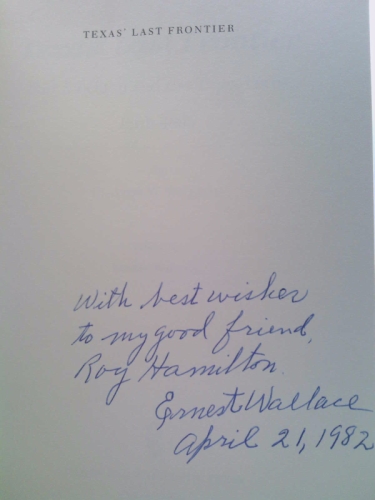 TEXAS' LAST FRONTIER
With best wishes
to my good friend,
Roy Hamilton.
Ernest Wallace
April 21, 1982